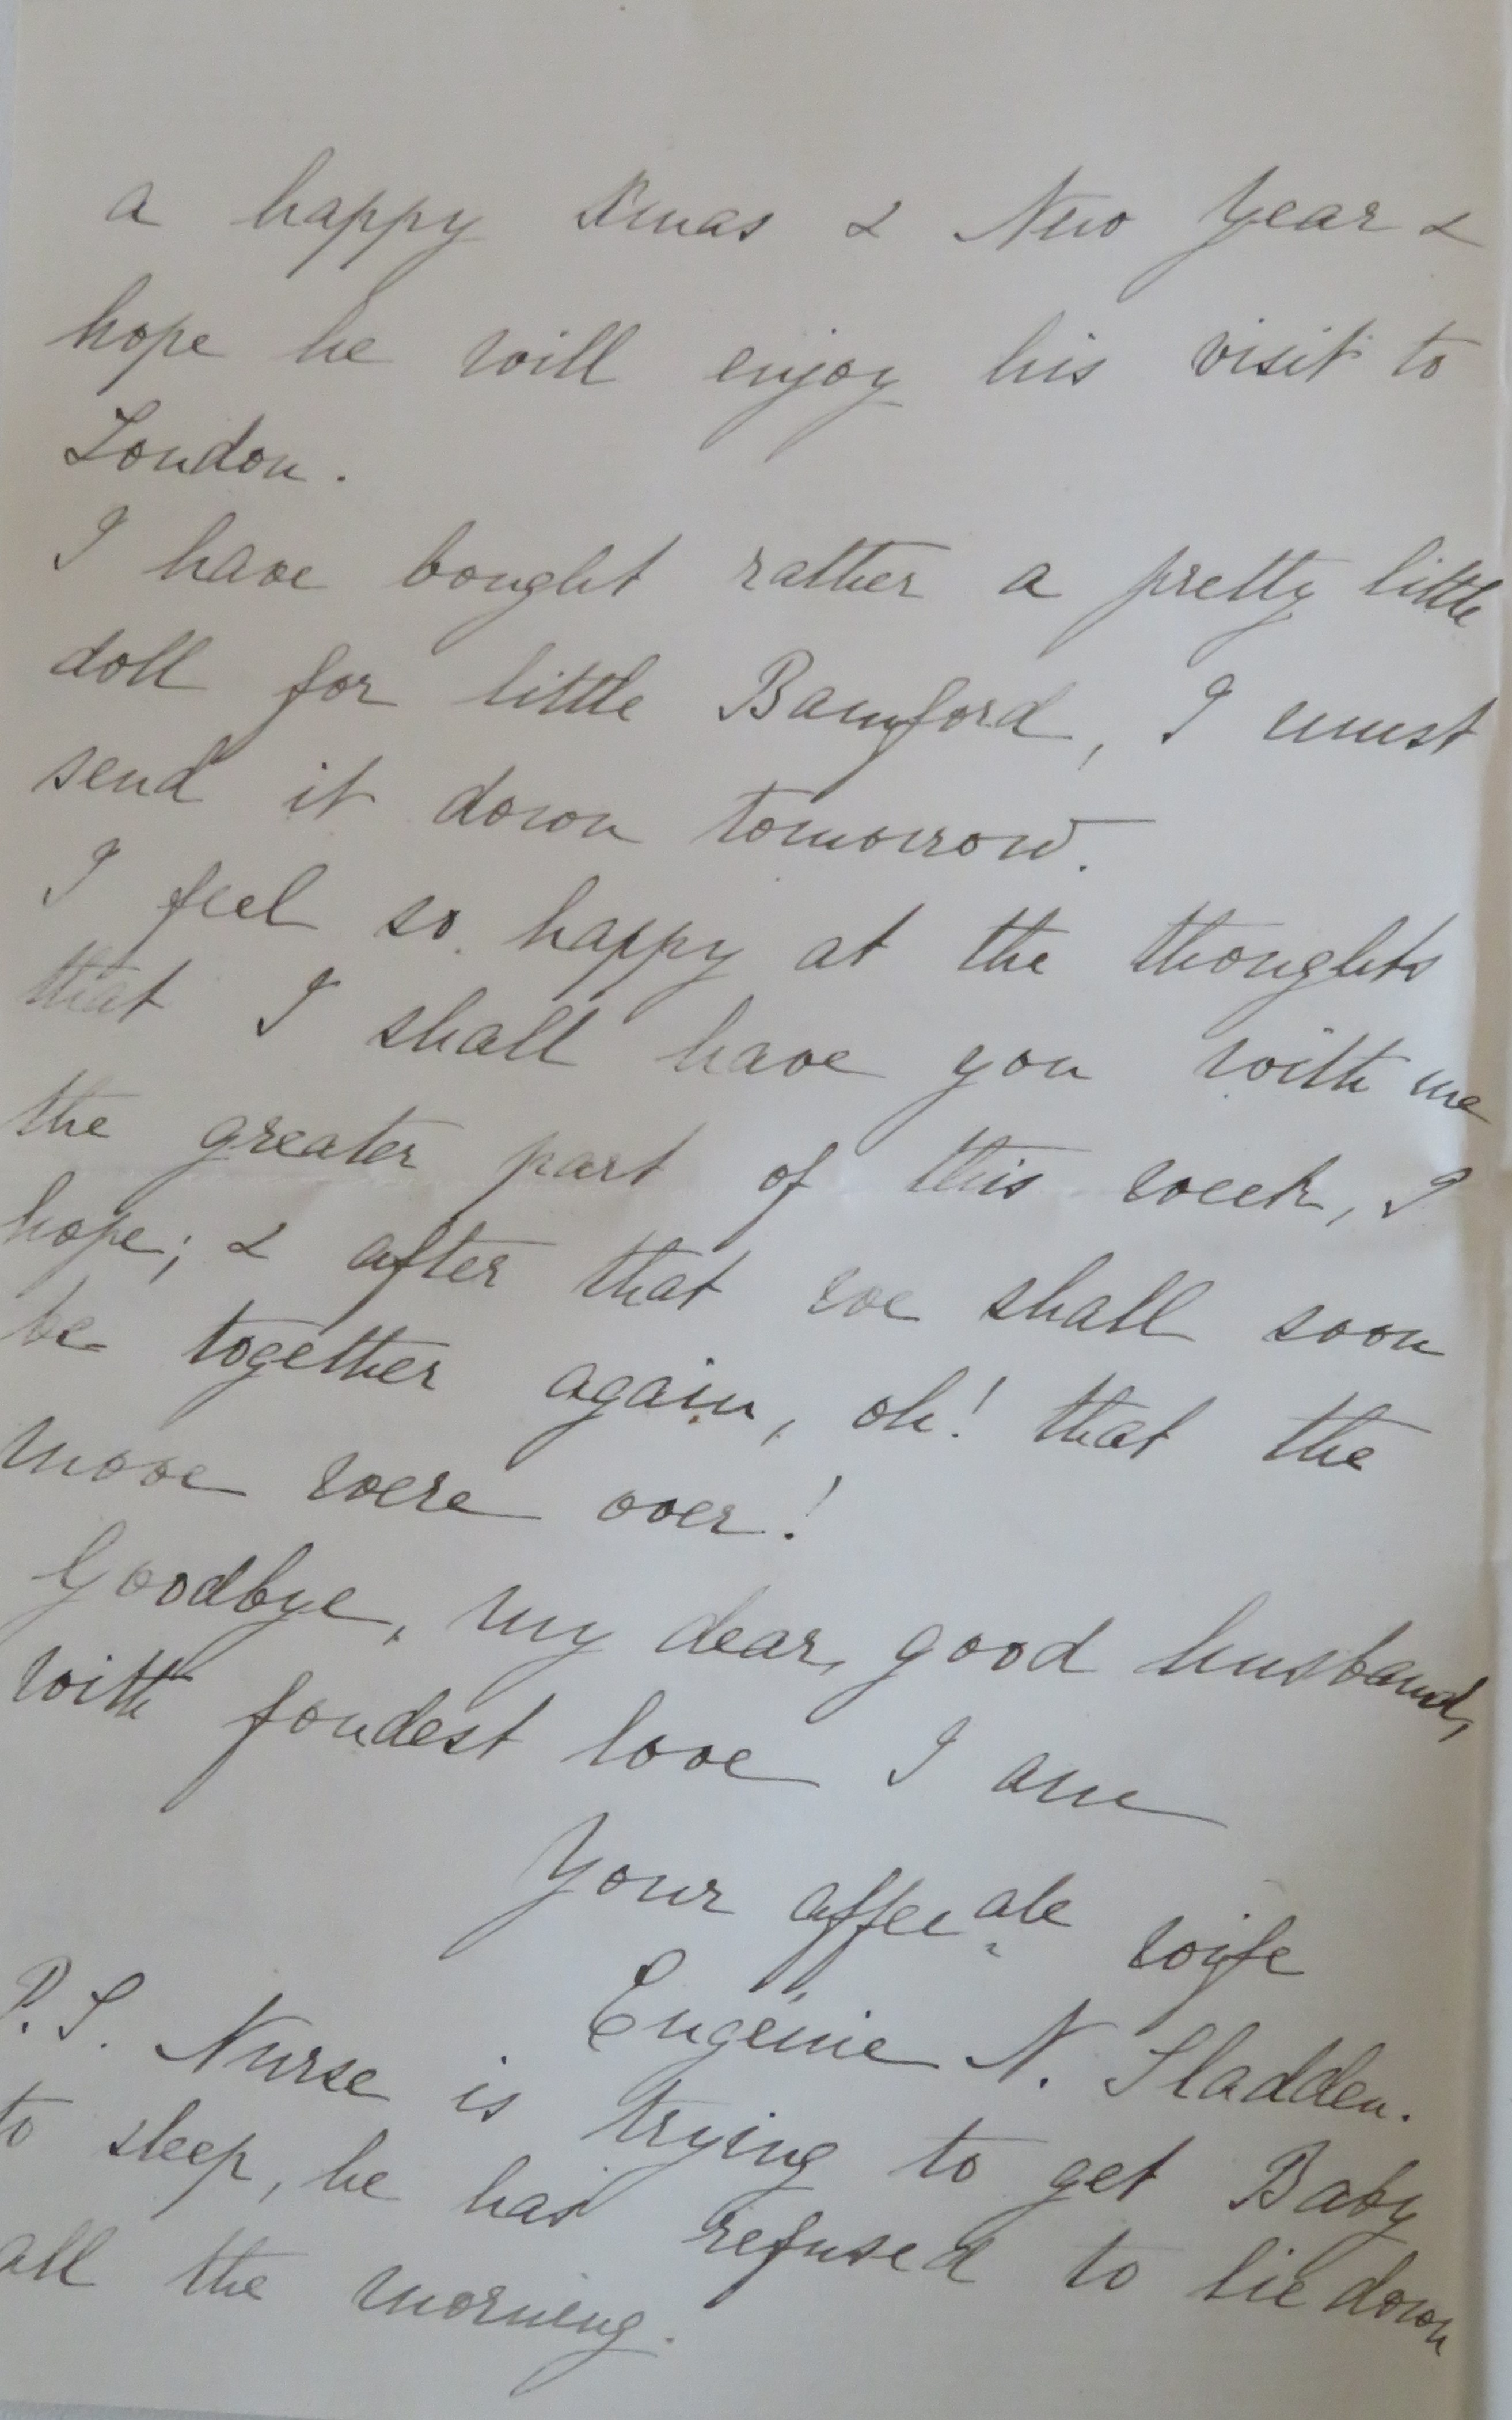 a happy Xmas & New Year &
hope he will enjoy his visit to
London.
I have bought rather a pretty little
doll for little Bamford, I must
send it down tomorrow.
I feel so happy at the thoughts
that I shall have you with me
the greater part of this week, I
hope; & after that we shall soon
be together again, oh! that the
move were over!
Goodbye, my dear, good husband,
with fondest love I am
Your affecate wife
Eugénie N. Sladden.
P.S. Nurse is trying to get Baby
to sleep, he has refused to lie down
all the morning.